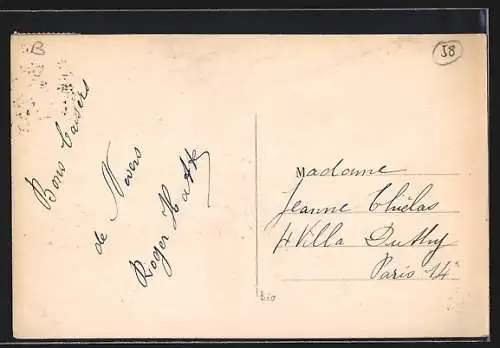 B
58
Bons baisers
de Nevers
Roger
Madame
Jeanne Thielas
4 Villa Duthy
Paris 14e
bio